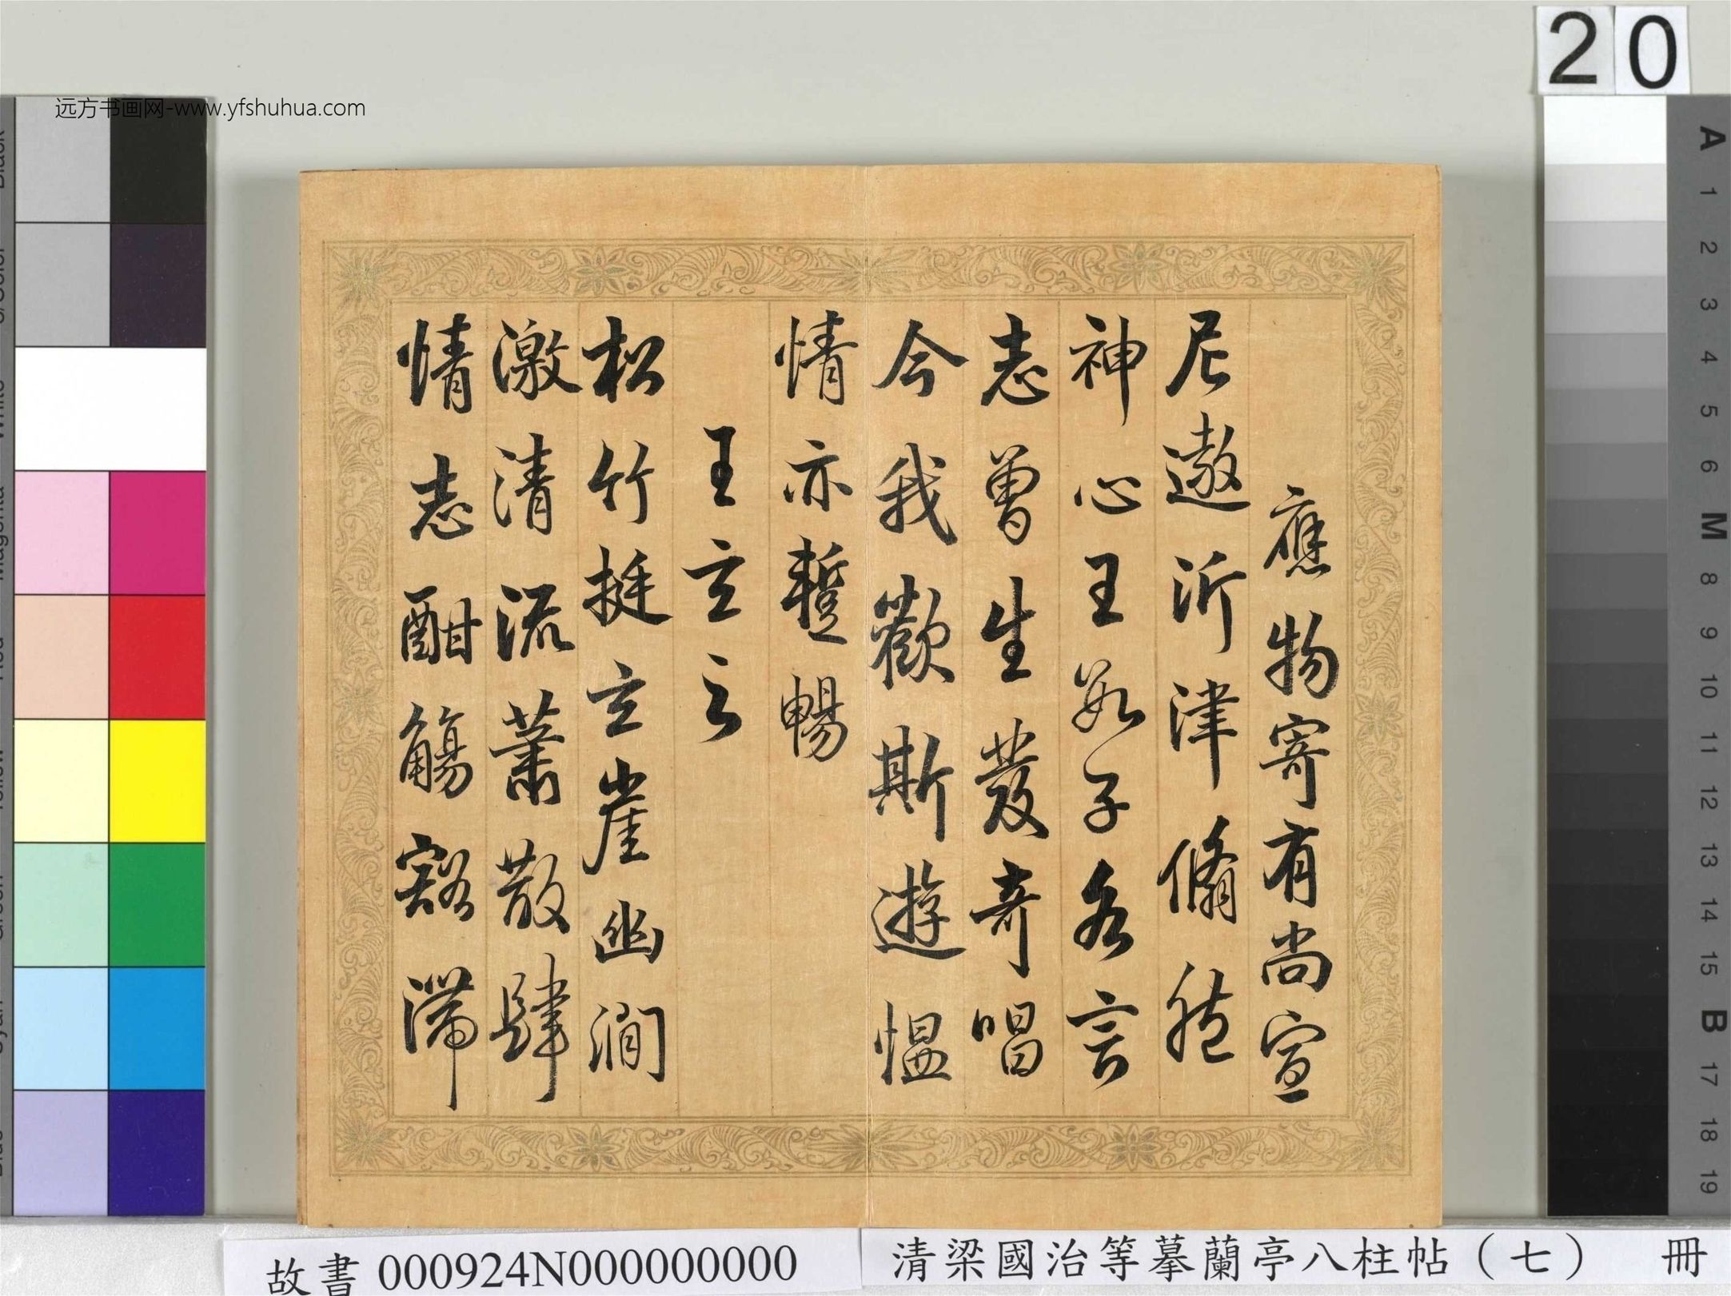 远方书画网-www.yfshuhua.com
20
應物寄有尚宣
尼遨沂津翛然
神心王數子各言
志曾生發奇唱
今我歡斯遊慍
情亦蹔暢
王玄之
松竹挺玄崖幽澗
激清流蕭散肆
情志酣觴豁滯
故書 000924N000000000
清梁國治等摹蘭亭八柱帖（七） 冊
A 1 2 3 4 5 6 M 8 9 10 11 12 13 14 15 B 17 18 19